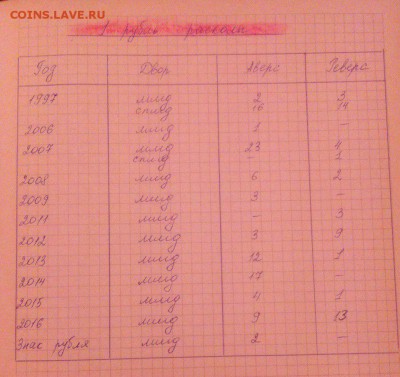 COINS.LAVE.RU
1 рубль расколы
Год Двор Аверс Реверс
1997 ммд 2 3
спмд 16 14
2006 ммд 1 -
2007 ммд 23 4
спмд - 1
2008 ммд 6 2
2009 ммд 3 -
2011 ммд - 3
2012 ммд 3 9
2013 ммд 12 1
2014 ммд 17 -
2015 ммд 4 1
2016 ммд 9 13
Знак рубля ммд 2 -